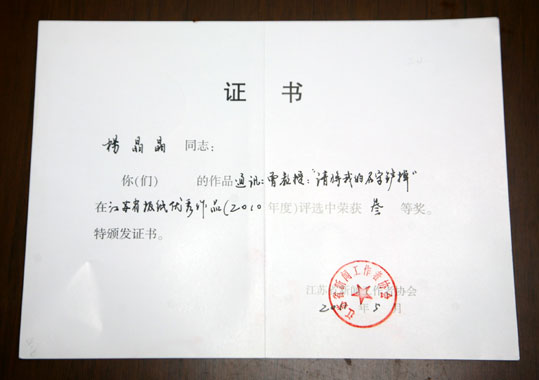 证书
杨晶晶 同志：
你(们) 的作品通讯：曹教授："请将我的名字抹掉"
在江苏省报纸优秀作品(2010年度)评选中荣获 叁 等奖。
特颁发证书。
江苏省新闻工作者协会
年5月